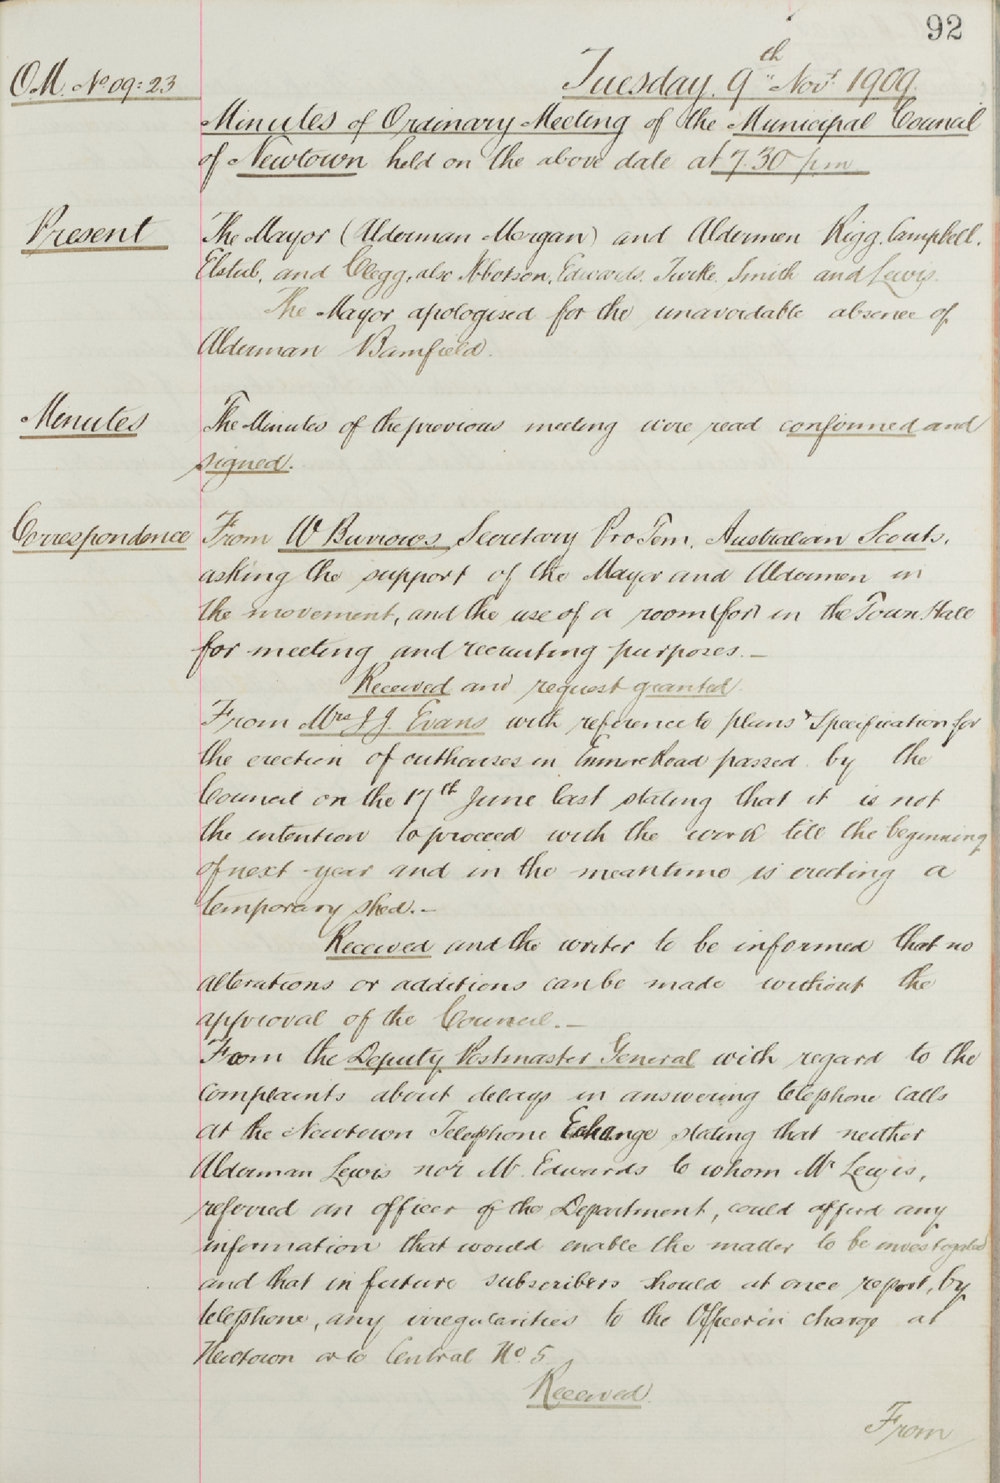 92
O.M. No 09:23
Tuesday. 9th Novr 1909.
Minutes of Ordinary Meeting of the Municipal Council
of Newtown held on the above date at 7.30 pm
Present
The Mayor (Alderman Morgan) and Aldermen Rigg, Campbell,
Elstub, and Clegg, also Ibbotson, Edwards, Turtle, Smith and Lewis.
The Mayor apologised for the unavoidable absence of
Alderman Bamfield.
Minutes
The Minutes of the previous meeting were read confirmed and
signed.
Correspondence
From W Burrows Secretary Pro Tem, Australian Scouts,
asking the support of the Mayor and Aldermen in
the movement, and the use of a room (for) in the Town Hall
for meeting and recruiting purposes.—
Received and request granted.
From Mrs J J Evans with reference to plans & Specification for
the erection of outhouses in Enmore Road passed by the
Council on the 17th June last stating that it is not
the intention to proceed with the work till the beginning
of next year and in the meantime is erecting a
temporary shed.—
Received and the writer to be informed that no
alterations or additions can be made without the
approval of the Council.—
From the Deputy Postmaster General with regard to the
complaints about delays in answering telephone calls
at the Newtown Telephone Exhange stating that neither
Alderman Lewis nor Mr. Edwards to whom Mr Lewis,
referred an officer of the Department, could afford any
information that would enable the matter to be investigated
and that in future subscribers should at once report, by
telephone, any irregularities to the Officer in charge at
Newtown or to Central No. 5
Received.
From